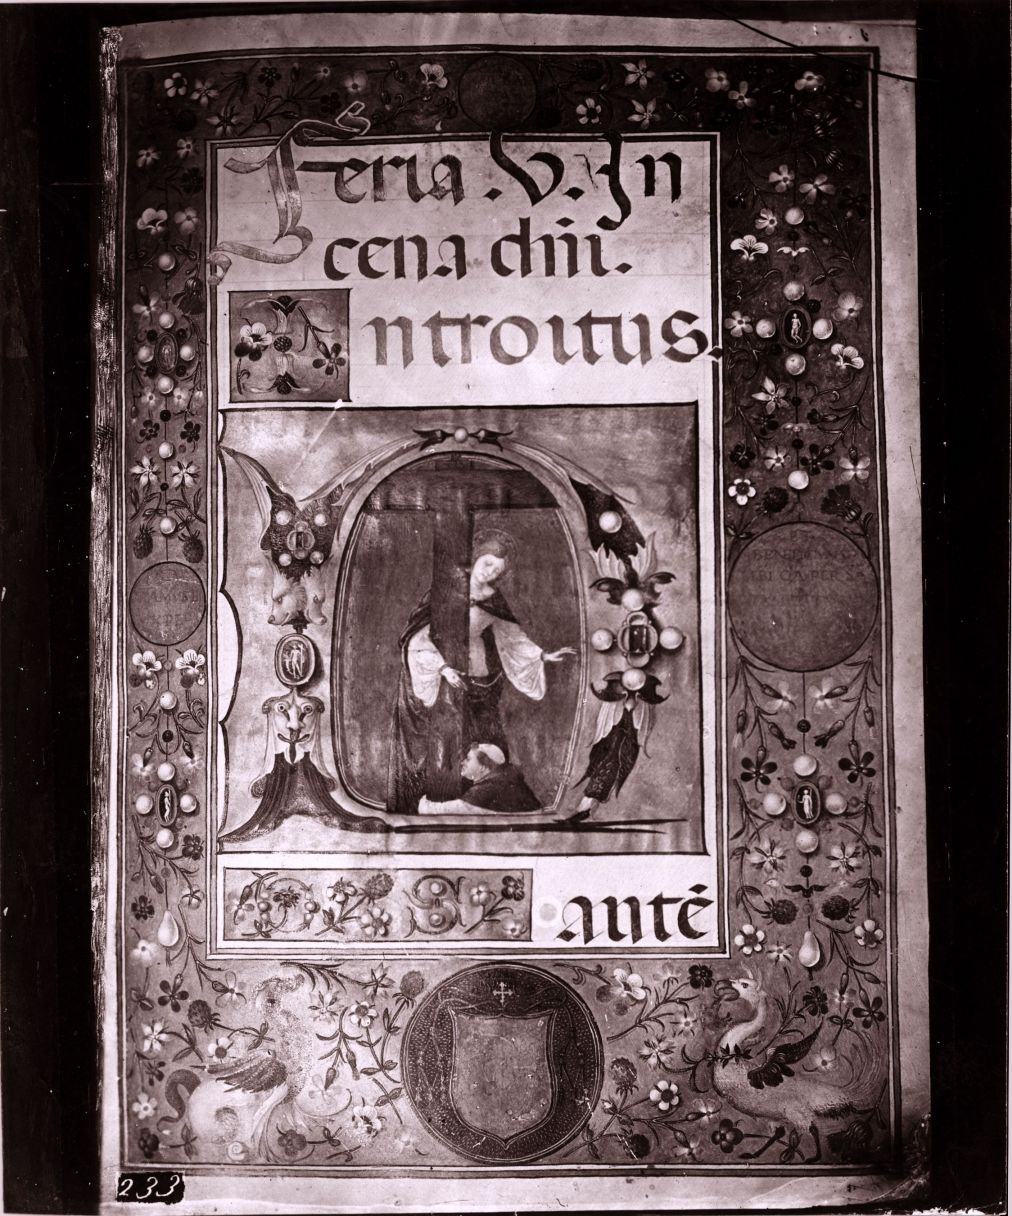 Feria .V. In
cena dñi.
Introitus.
N
antē
233